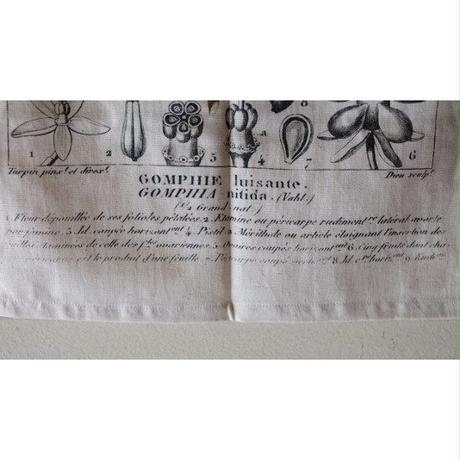 1 2 5 4 8 7 6
a
Turpin pinx.t et direx.t Dien sculp.t
GOMPHIE luisante.
GOMPHIA nitida. (Vahl.)
(1/2 Grand. nat.)
1. Fleur dépouillée de ses folioles pétalées. 2. Etamine ou péricarpe rudiment.re latéral avorté
par famine. 3. Id. coupée horizont. 4. Pistil a. Mérithale ou article éloignant l'insertion des
de celle des f.les ovariennes. 5. Ovaires coupés horizont. 6. Cinq fruits dont
est le produit d'une feuille. 7. Péricarpe coupé 8. Id. horiz.ont 9.